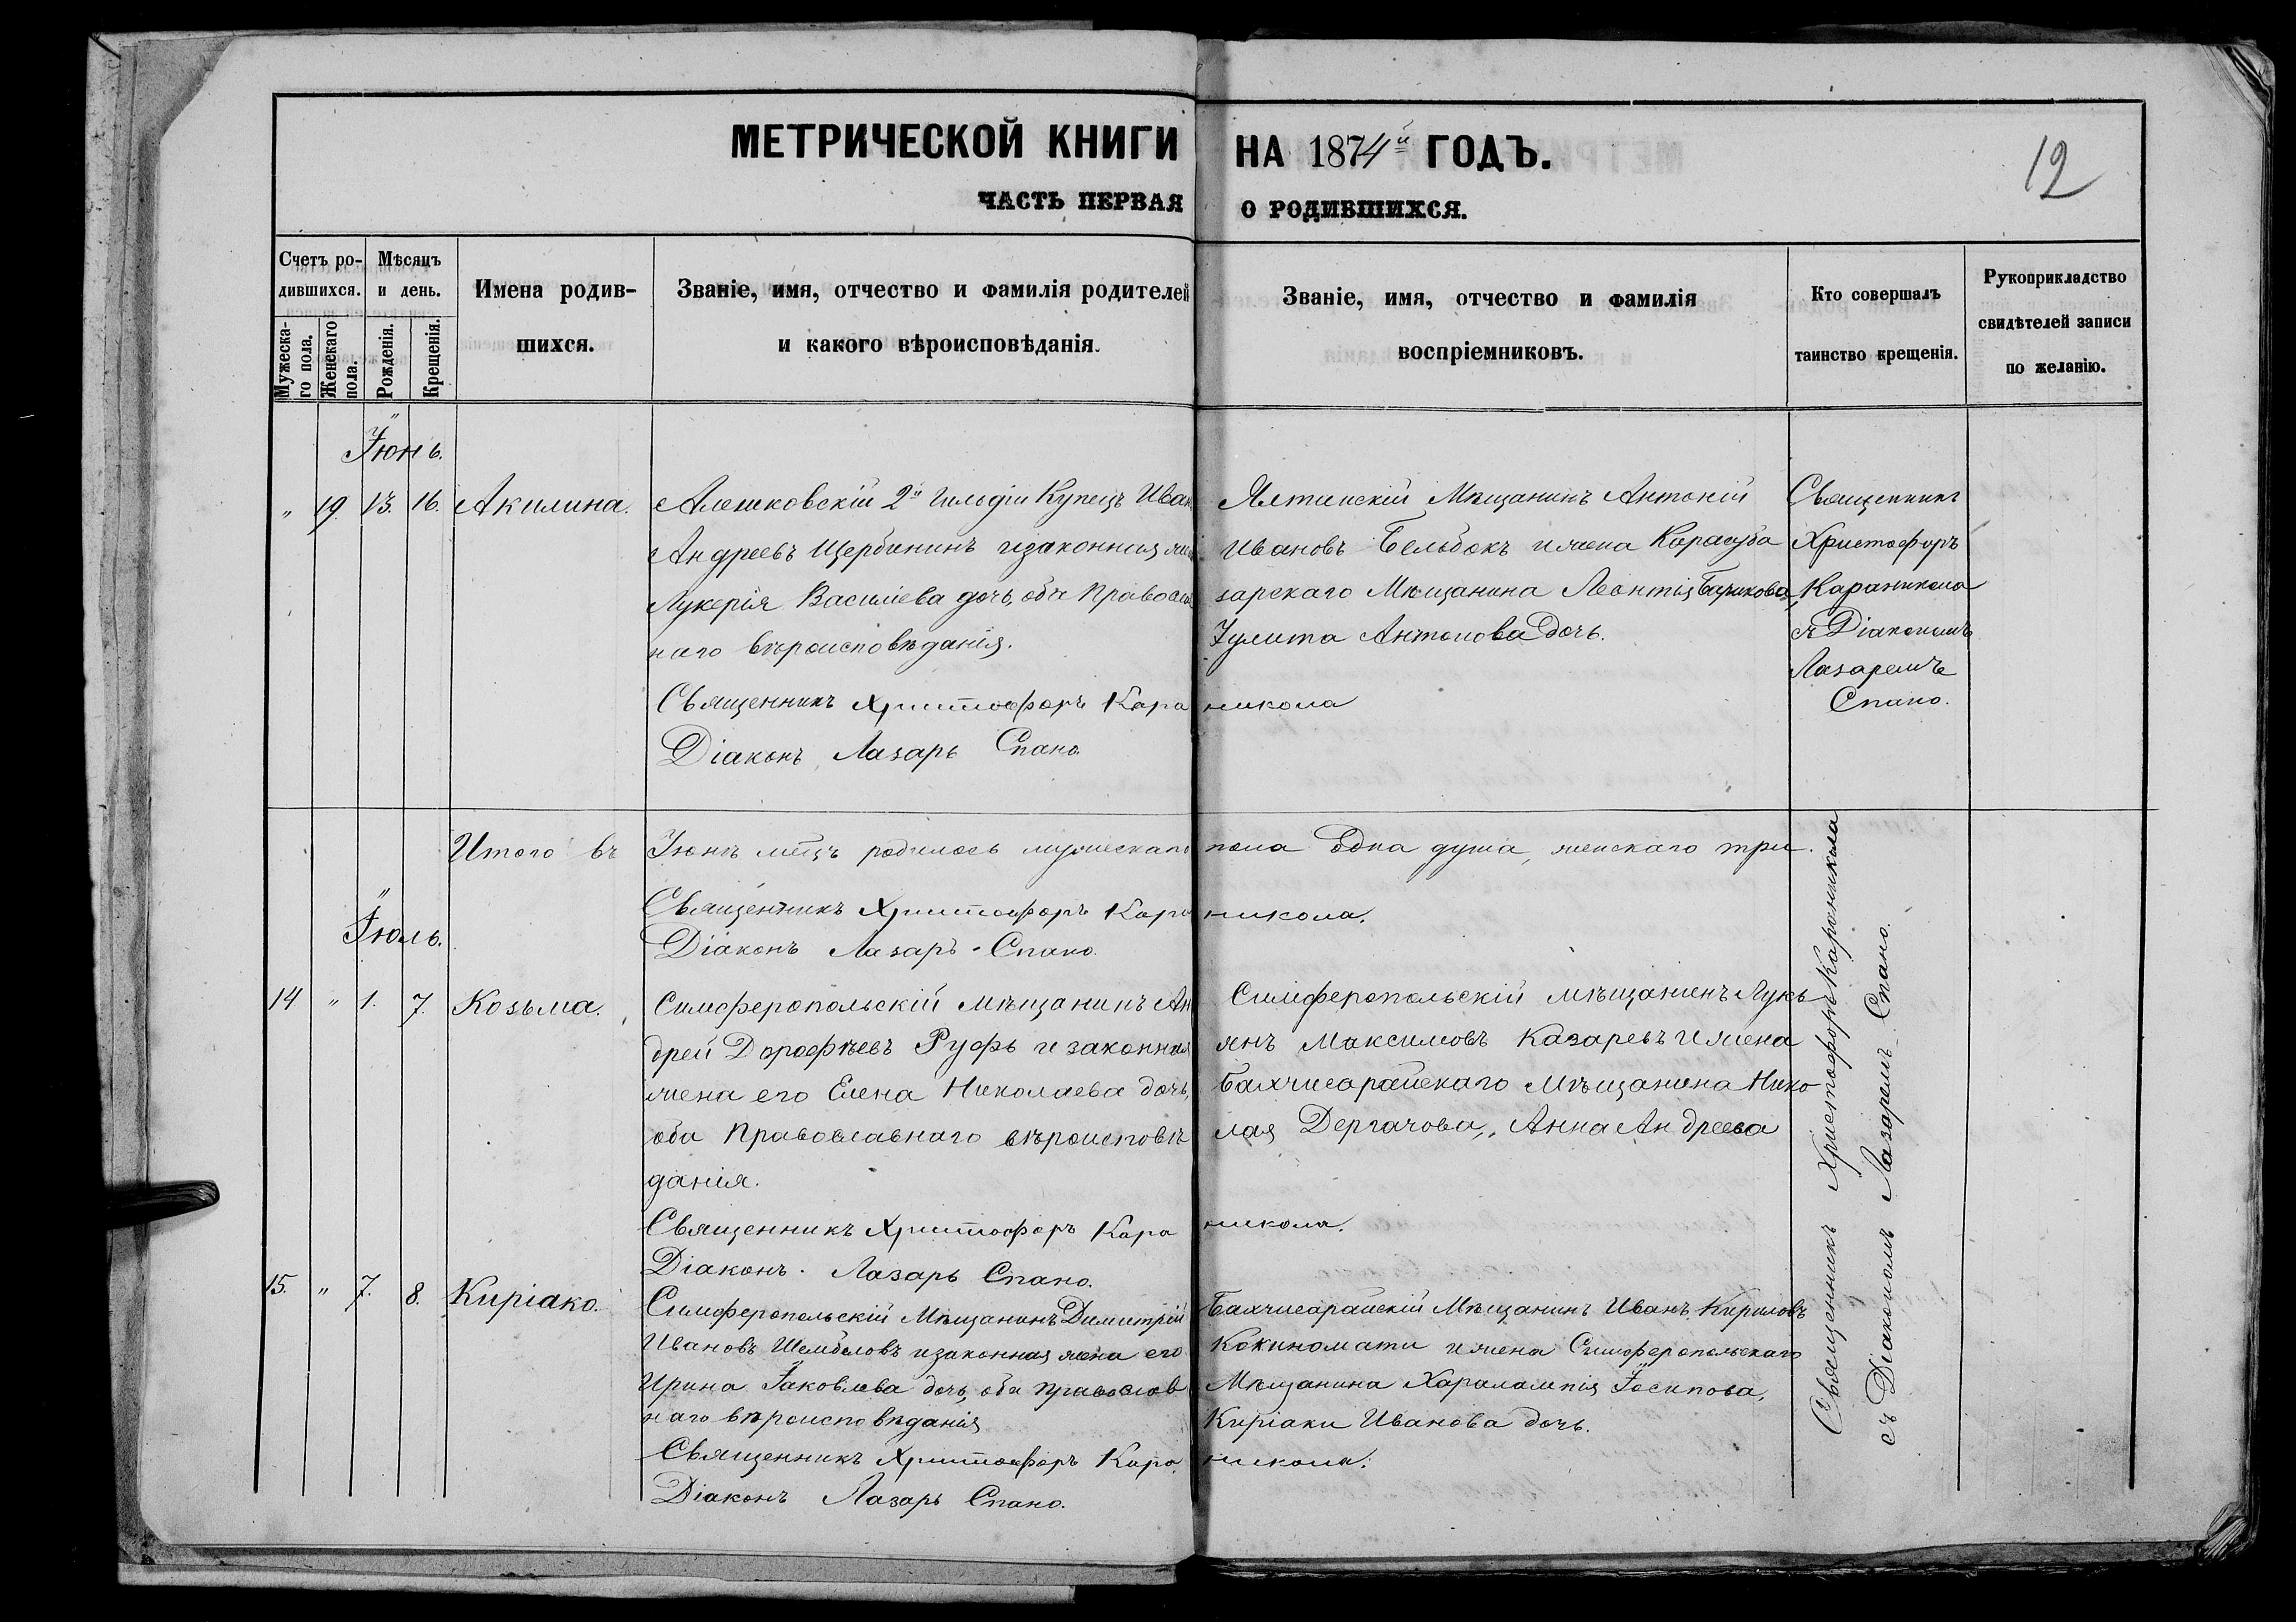 МЕТРИЧЕСКОЙ КНИГИ НА 1874й ГОДЪ.
12
ЧАСТЬ ПЕРВАЯ О РОДИВШИХСЯ.
Счетъ ро-
дившихся.
Мужеска-
го пола.
Женскаго
пола.
Мѣсяцъ
и день.
Рожденія.
Крещенія.
Имена родив-
шихся.
Званіе, имя, отчество и фамилія родителей
и какого вѣроисповѣданія.
Званіе, имя, отчество и фамилія
воспріемниковъ.
Кто совершалъ
таинство крещенія.
Рукоприкладство
свидѣтелей записи
по желанію.
Іюнь.
" 19. 13. 16. Акилина.
Алешковскій 2й Гильдіи Купецъ Иван
Андреевъ Щербининъ и законная
Лукерія Василіева дочь, оба Правосла
наго вѣроисповѣданія.
Священникъ Христофоръ Кара
Діаконъ Лазарь Спано.
Ялтинскій Мѣщанинъ Антоній
Ивановъ Бельбокъ и жена Карасуба
зарскаго Мѣщанина Леонтія
Іулита Антонова дочь.
никола
Священникъ
Христофоръ
Караникола
съ Діакономъ
Лазаремъ
Спано.
Итого въ Іюнѣ мѣцѣ родилось мужескаго пола одна душа, женскаго три.
Священникъ Христофоръ Кара никола.
Діаконъ Лазарь Спано.
Іюль.
14 " 1. 7. Козьма.
Симферопольскій Мѣщанинъ Ан
дрей Дорофѣевъ Руфъ и законная
жена его Елена Николаева дочь,
оба Православнаго вѣроисповѣ
данія.
Священникъ Христофоръ Кара
Діаконъ. Лазарь Спано.
Симферопольскій мѣщанинъ Лукь
янъ Максимовъ Казаревъ и жена
Бахчисарайскаго Мѣщанина Нико
лая Дергачова, Анна Андреева
никола.
15. " 7. 8. Киріако.
Симферопольскій Мѣщанинъ Димитрій
Ивановъ Шембеловъ и законная жена его
Ирина Іаковлева дочь, оба Православ
наго вѣроисповѣданія
Священникъ Христофоръ Кара
Діаконъ Лазарь Спано.
Бахчисарайскій Мѣщанинъ Иванъ Кириловъ
Кокиномати и жена Симферопольскаго
Мѣщанина Харалампія Іосипова,
Киріаки Иванова дочь.
никола.
Священникъ Христофоръ Караникола
съ Діакономъ Лазаремъ Спано.